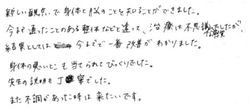 新しい観点で身体と脳のことを知ることができました。
今まで通ったことのある整体などと違って、治療は不思議でしたが、
結果としては 今までで一番 改善がわかりました。
身体の悪いとこも当てられてびっくりした。
先生の説明も丁寧でした。
また不調があった時は来たいです。